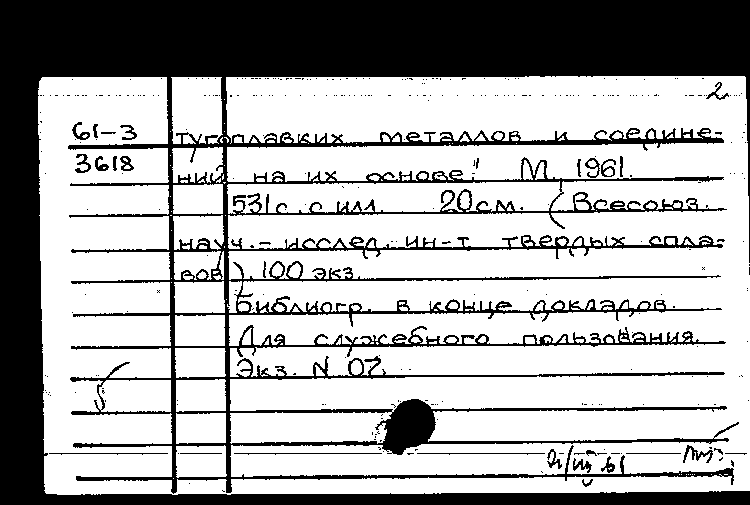 2
61-3 тугоплавких металлов и соедине-
3618 ний на их основе." М., 1961.
531с. с илл. 20см. (Всесоюз.
науч.-исслед. ин-т твердых спла-
вов). 100 экз.
Библиогр. в конце докладов.
Для служебного пользования.
Экз. N 07.